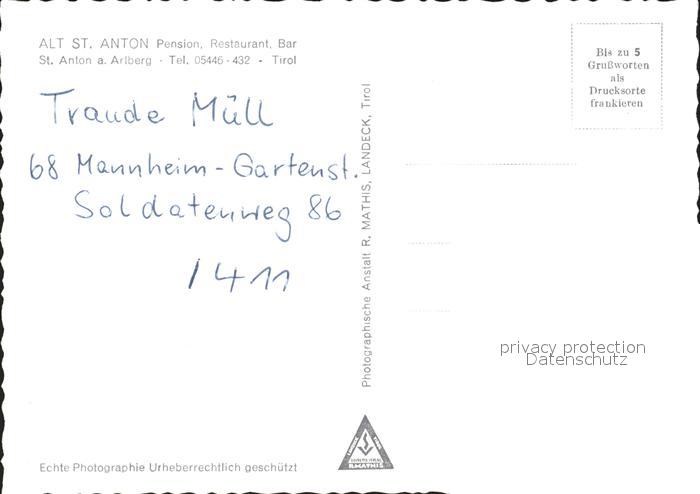 ALT ST. ANTON Pension, Restaurant, Bar
St. Anton a. Arlberg - Tel. 05446-432 - Tirol
Traude Müll
68 Mannheim-Gartenst.
Soldatenweg 86
1411
Echte Photographie Urheberrechtlich geschützt
Photographische Anstalt R. MATHIS, LANDECK, Tirol
R.MATHIS
Bis zu 5
Grußworten
als
Drucksorte
frankieren
privacy protection
Datenschutz